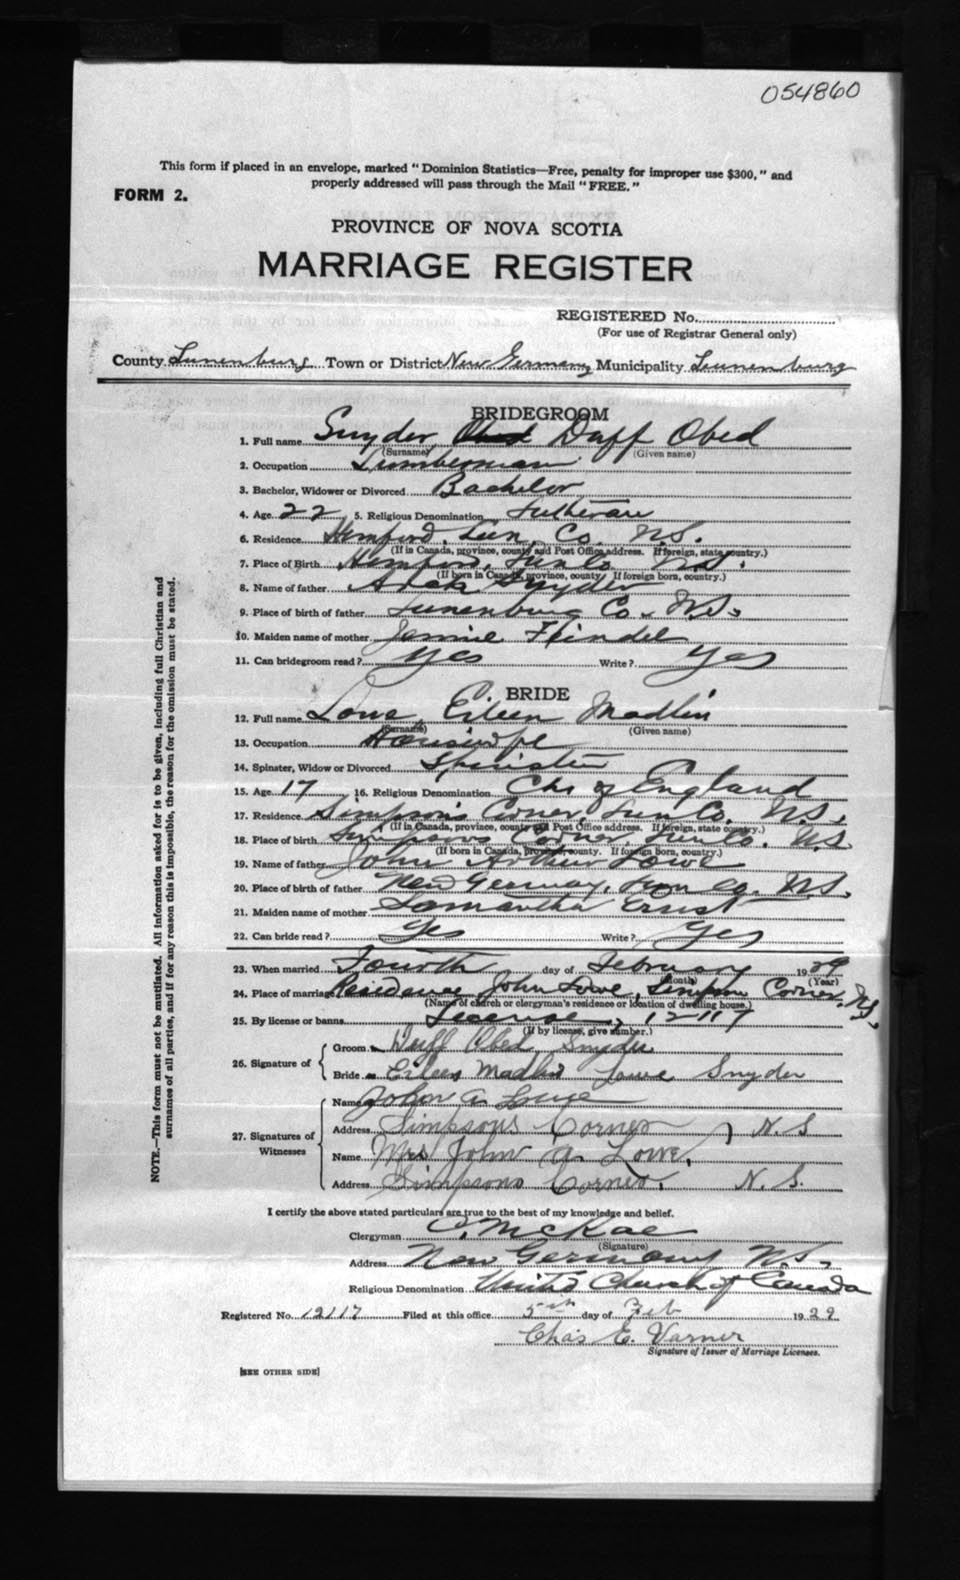 054860
This form if placed in an envelope, marked "Dominion Statistics—Free, penalty for improper use $300," and
properly addressed will pass through the Mail "FREE."
FORM 2.
PROVINCE OF NOVA SCOTIA
MARRIAGE REGISTER
REGISTERED No.
(For use of Registrar General only)
County Lunenburg Town or District New Germany Municipality Lunenburg
BRIDEGROOM
1. Full name Snyder, Obed Duff Obed
(Surname) (Given name)
2. Occupation Lumberman
3. Bachelor, Widower or Divorced Bachelor
4. Age 22 5. Religious Denomination Lutheran
6. Residence Hemford, Lun. Co. N.S.
(If in Canada, province, county and Post Office address. If foreign, state country.)
7. Place of Birth Hemford, Lun Co N.S.
(If born in Canada, province, county. If foreign born, country.)
8. Name of father Snyder
9. Place of birth of father Lunenburg Co. N.S.
10. Maiden name of mother Jennie Feindel
11. Can bridegroom read? Yes Write? Yes
BRIDE
12. Full name Lowe, Eileen Madlin
(Surname) (Given name)
13. Occupation Housewife
14. Spinster, Widow or Divorced Spinster
15. Age 17 16. Religious Denomination Chr of England
17. Residence Simpson's Corner, Lun Co. N.S.
(If in Canada, province, county and Post Office address. If foreign, state country.)
18. Place of birth Simpsons Corner, Lun Co. N.S
(If born in Canada, province, county. If foreign born, country.)
19. Name of father John Arthur Lowe
20. Place of birth of father New Germany, Lun Co. N.S.
21. Maiden name of mother Samantha Ernst
22. Can bride read? Yes Write? Yes
23. When married Fourth day of February 1929
(Month) (Year)
24. Place of marriage Residence John Lowe, Simpson Corner, N.S.
(Name of church or clergyman's residence or location of dwelling house.)
25. By license or banns License, 12117
(If by license, give number.)
26. Signature of
Groom Duff Obed Snyder
Bride Eileen Madlin Lowe Snyder
27. Signatures of Witnesses
Name John A Lowe
Address Simpsons Corner, N.S
Name Mrs John A. Lowe.
Address Simpsons Corner. N.S.
I certify the above stated particulars are true to the best of my knowledge and belief.
Clergyman C. McKae
(Signature)
Address New Germany N.S.
Religious Denomination United Church of Canada
Registered No. 12117 Filed at this office 5th day of Feb 1929
Chas E. Varner
Signature of Issuer of Marriage Licenses.
[SEE OTHER SIDE]
NOTE.—This form must not be mutilated. All information asked for is to be given, including full Christian and
surnames of all parties, and if for any reason this is impossible, the reason for the omission must be stated.